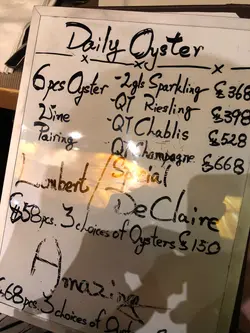 Daily Oyster
6pcs Oyster - 2gls Sparkling $368
2ine - QT Riesling $398
Pairing - QT Chablis $528
QT Champagne $668
Lambert / Special
De Claire
$58pcs. 3 choices of Oysters $150
Amazing
$68pcs. 3 choices of Oysters